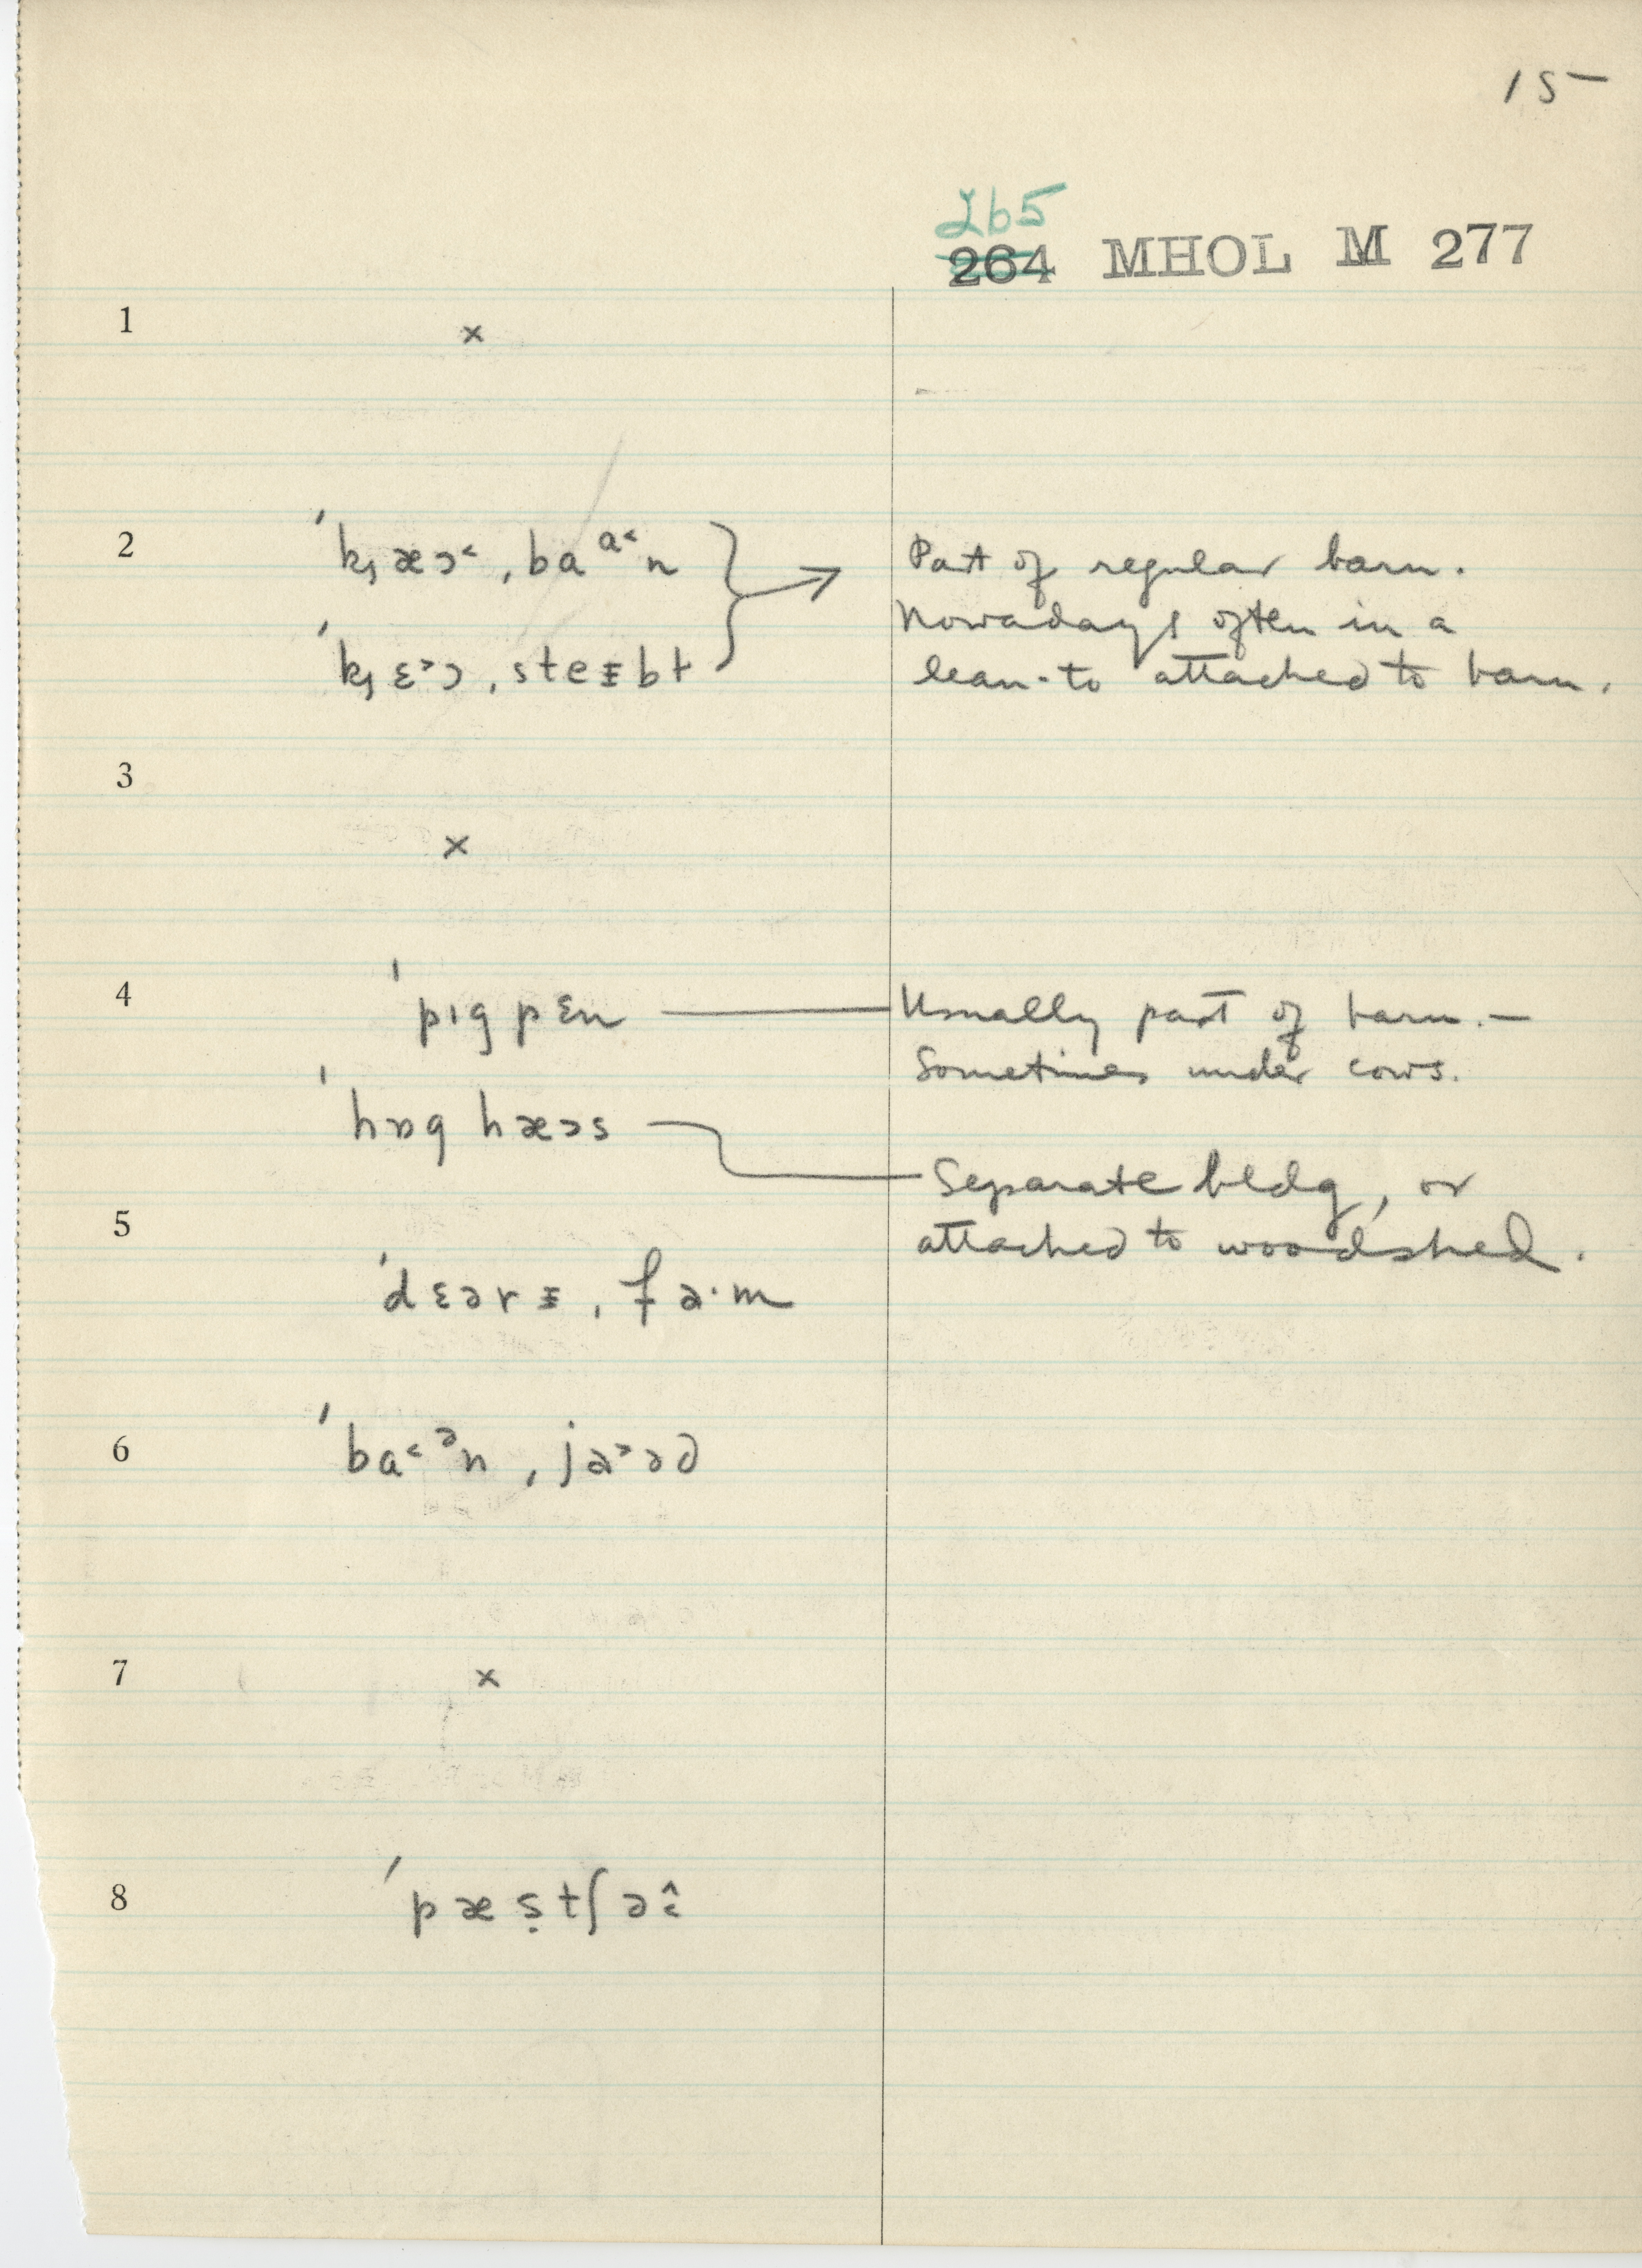 15
265
264 MHOL M 277
1 ×
2 ˈkʒæɔ˂ ˌbaᵃ˂n } → Part of regular barn.
Nowadays often in a
ˈkʒɛ˃ɔ ˌsteɪbɫ lean-to attached to barn.
3
×
4 ˈpɪgpɛn — Usually part of barn. —
Sometimes under cows.
ˈhɒg hæɔs — Separate bldg, or
5 attached to woodshed.
ˈdɛərɪ ˌfa·m
6 ˈba˂ᵊn ˌja˃əd
7 ×
8 ˈpæṣtʃə